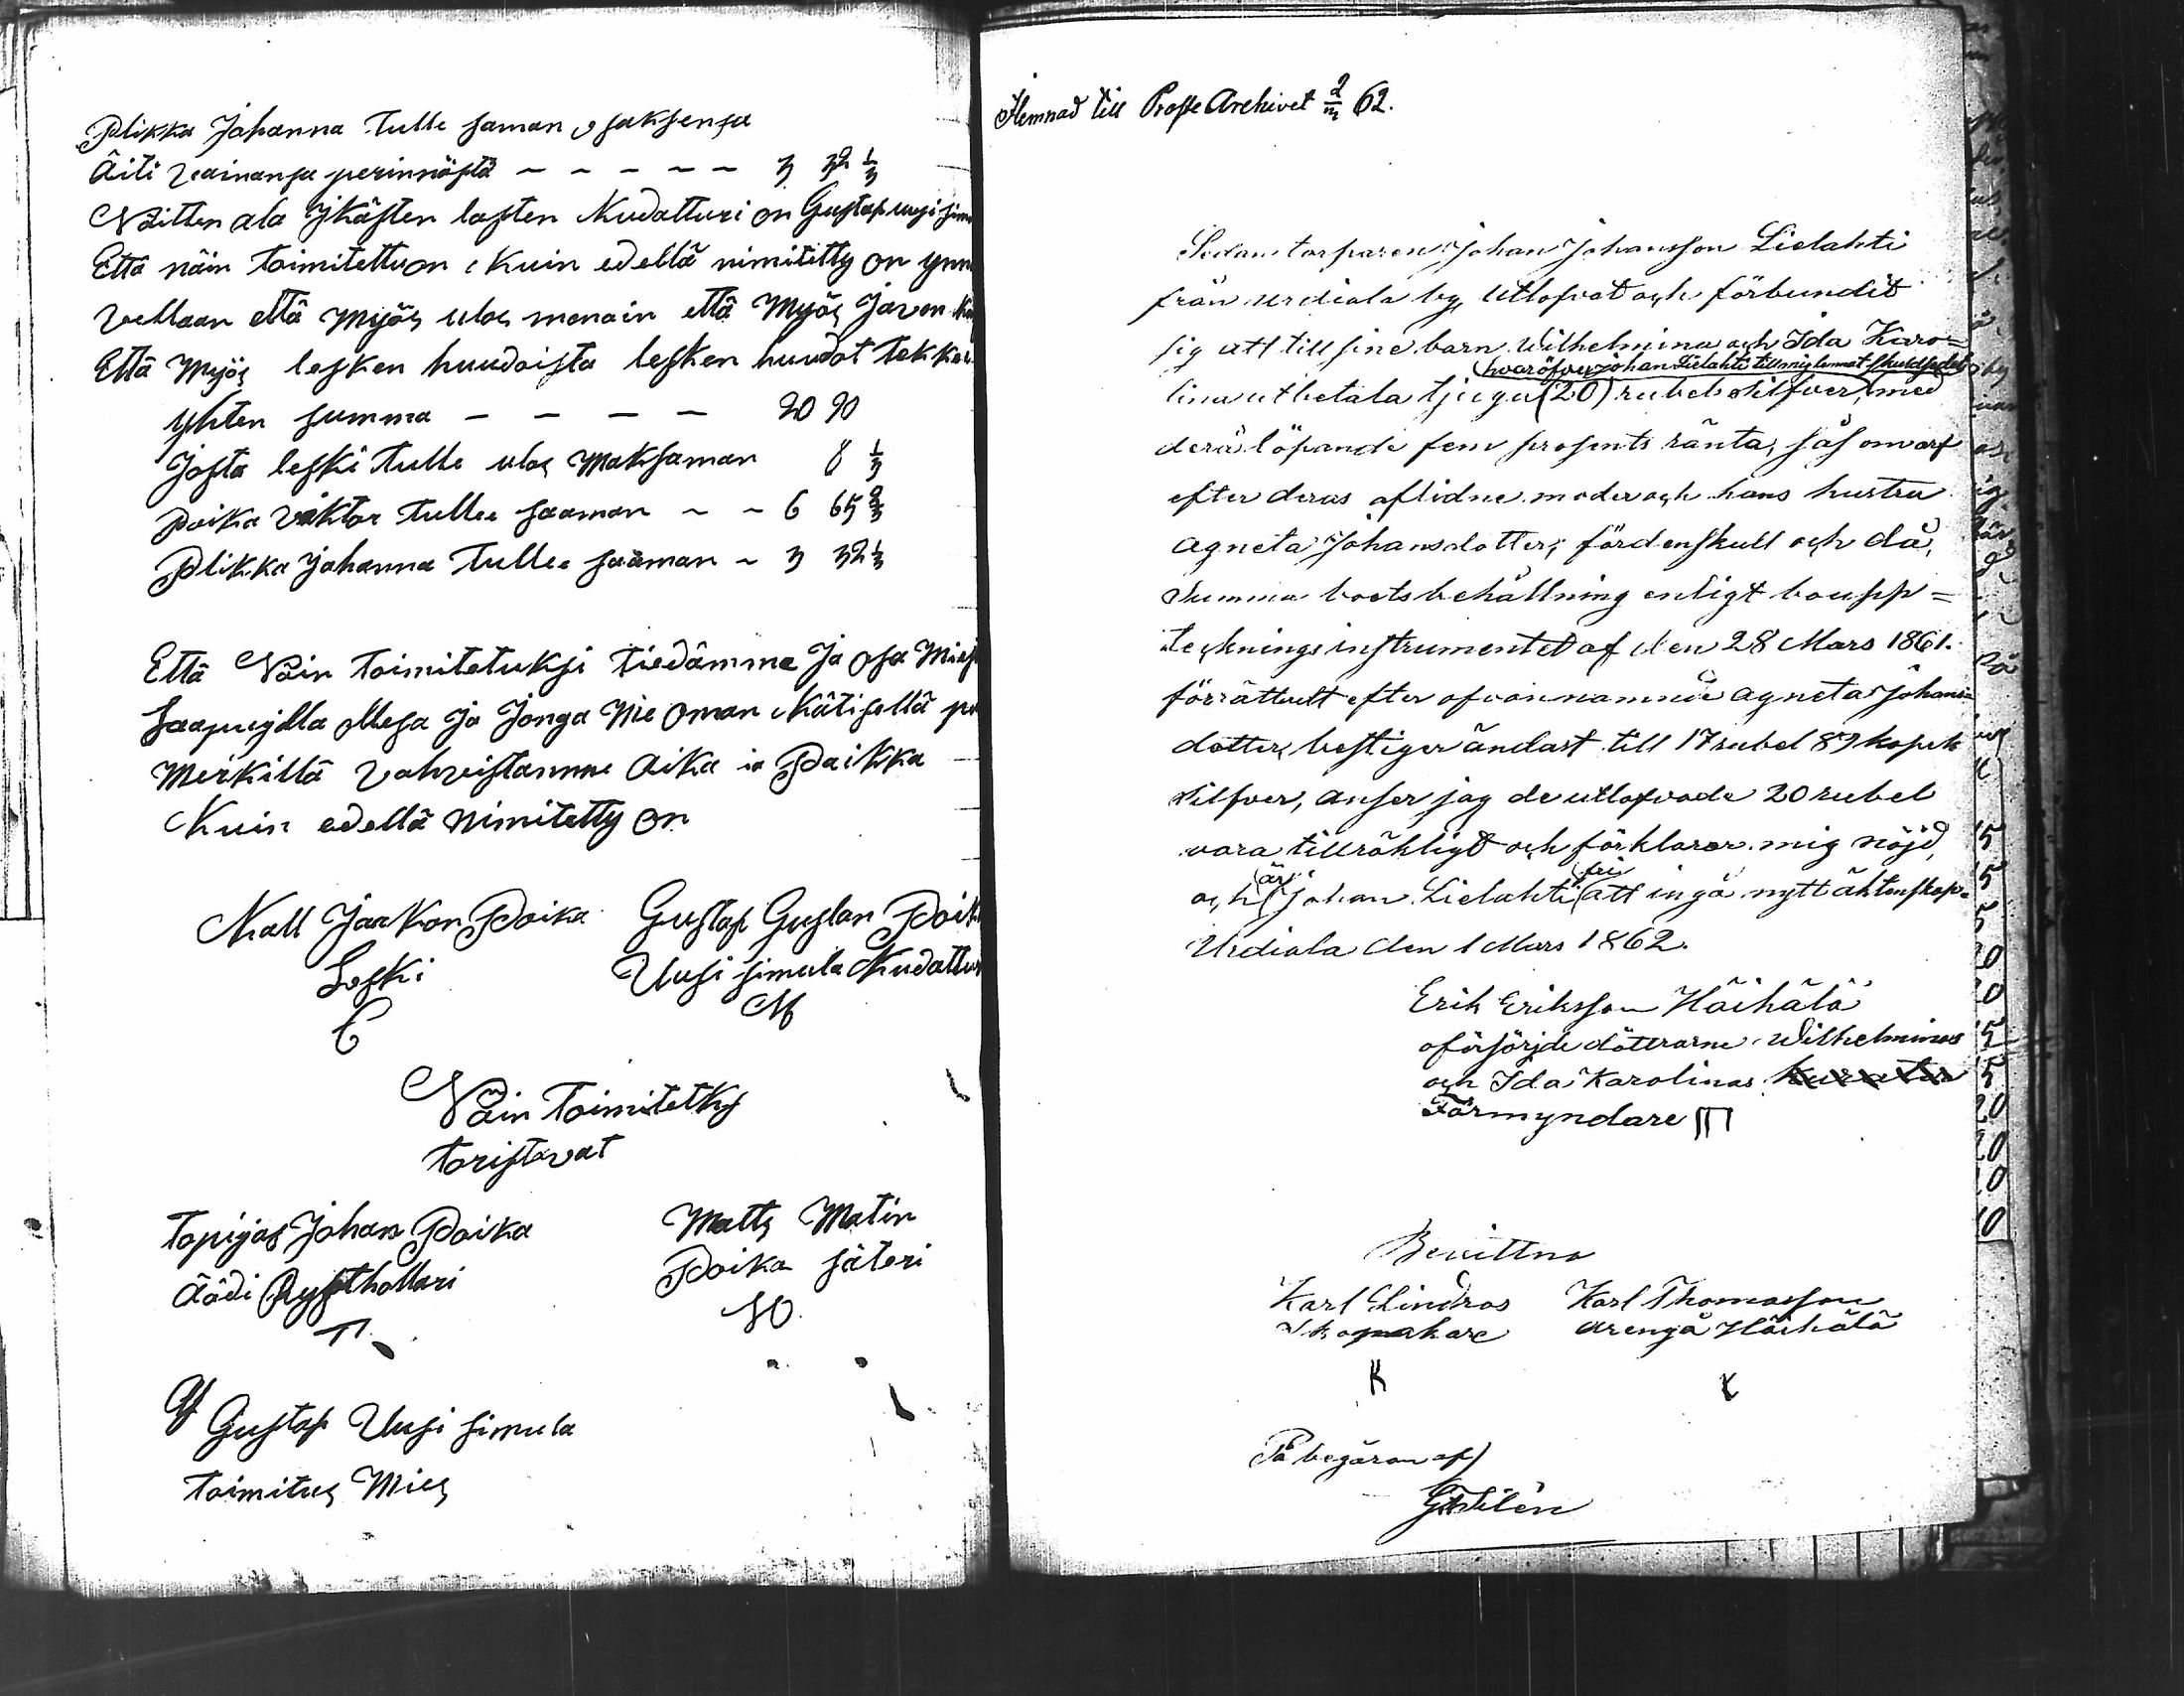 Plikka Johanna Tulle saman osaksensa
Äiti vainansa perinnöstä - - - - - 3 32 1/3
Näitten ala Ikästen lasten Kudatturi on Gustaf uusi sim
Että näin toimitettu on Kuin edellä nimitetty on ynn
vellaan että Myös ulos menoin että Myös Javon
Että Myös lesken huudoista lesken huudot tekke
yhten summa - - - - 20 90
Josta leski tulle ulos Maksaman 8 1/3
Poika Viktor tullee saaman - - 6 65 2/3
Plikka Johanna Tullee saaman - 3 32 1/3
Että Näin toimitetuksi tiedämme Ja osa Mies
saapuijlla ollesa Ja Jonga Me oman Kätisellä pu
Merkillä vahvistamme Aika ja Paikka
Kuin edellä nimitetty on
Matt Jaakon Poika Gustaf Gustan Poik
Leski Uusi simula Kudattur
Näin Toimitetksi
toristavat
Topijas Johan Poika Matts Matin
Äädi Rysthollari Poika säteri
Gustaf Uusi simula
toimitus Mies
Lemnad till ProsteArchivet 2/m 62.
Sedan torparen Johan Johansson Lielahti
från Urdiala by, utlofvat och förbundit
sig att till sine barn Wilhelmina och Ida Karo=
hvaröfver Johan Lielahti till mig lemnat skuldsedel
lina utbetala tjugu (20) rubel silfver, med
derå löpande fem prosents ränta, såsom arf
efter deras aflidne moder och hans hustru
Agneta Johansdotter; fördenskull och då,
Summa boets behållning enligt boupp=
teckningsinstrumentet af den 28 Mars 1861.
förrättadt efter ofvannämnde Agneta Johans=
dotter, bestiger ändast till 17 rubel 89 kopek
silfver, anser jag de utlofvade 20 rubel
vara tillräkligt och förklarar mig nöjd,
är fri
och Johan Lielahti att ingå nytt äktenskap.
Urdiala den 1 Mars 1862.
Erik Eriksson Häihälä
oförsörjde döttrarne Wilhelminas
och Ida Karolinas Kurator
Förmyndare
Bevittna
Karl Lindros Karl Thomasson
Skomakare Arengå Häihälä
K
På begäran af